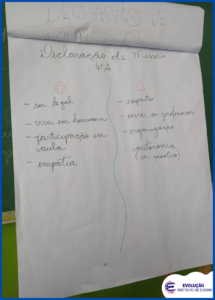 Declaração de missão
+
- ser legal
- viver em harmonia
- participação em aula
- empatia
- respeito
- ouvir os professores
- organização
- autonomia
EVOLUÇÃO
INSTITUTO DE ENSINO